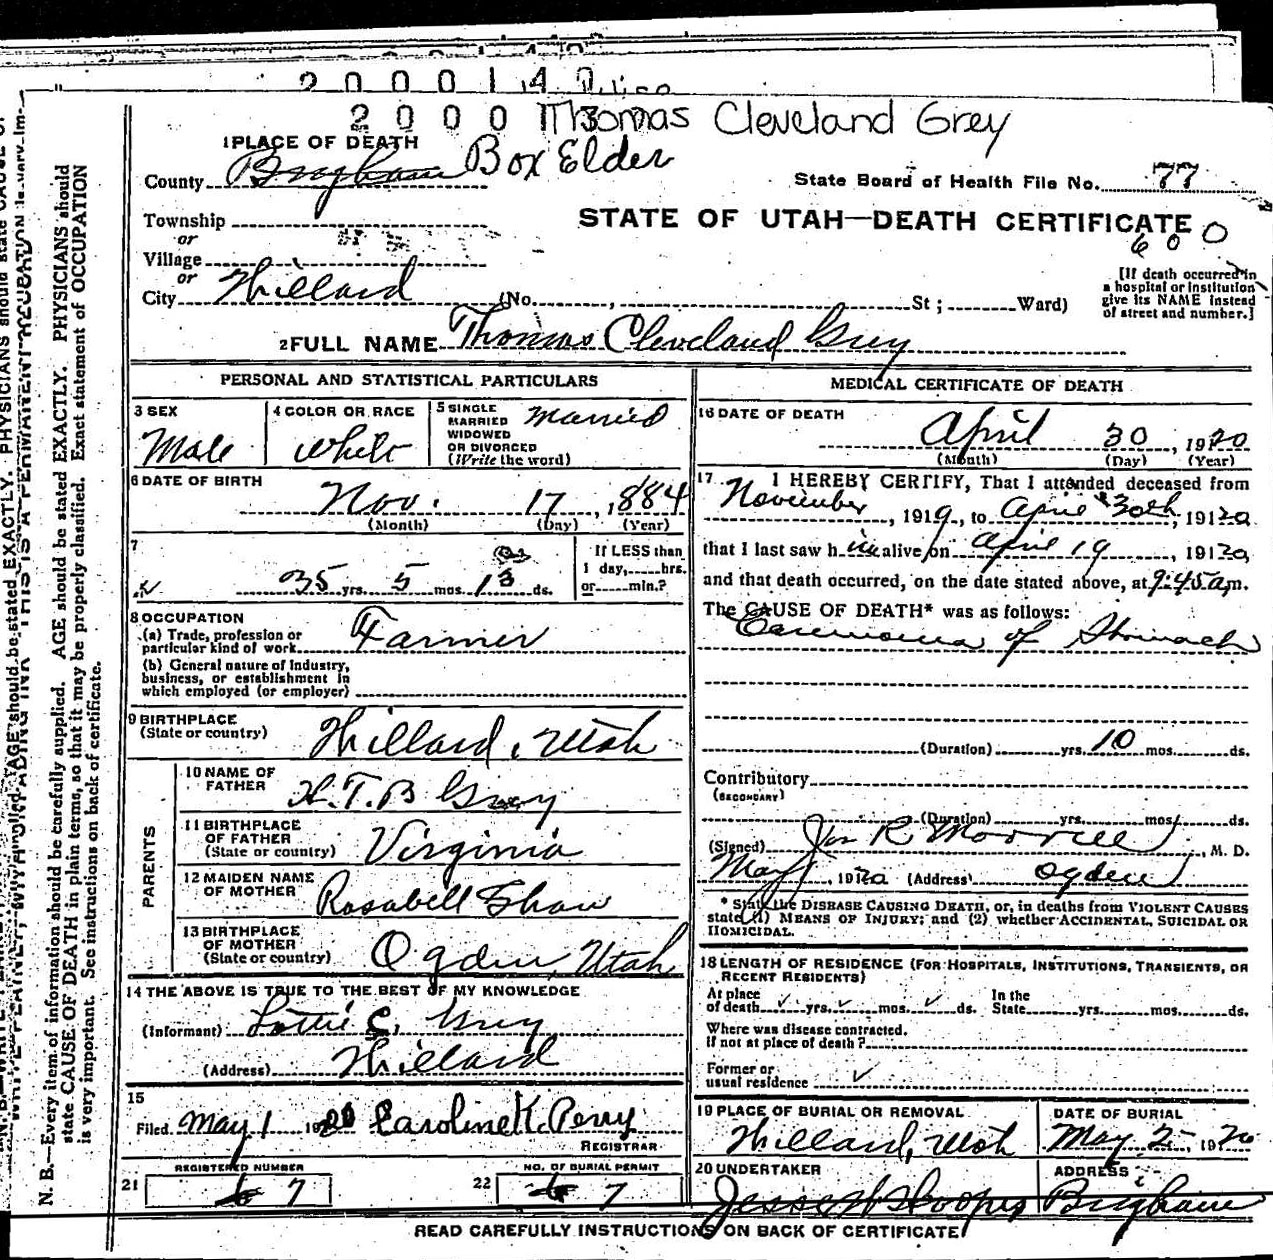 2 0 0 0 1 4 0
2 0 0 0 1 3
Thomas Cleveland Grey
1 PLACE OF DEATH
County Brigham Box Elder
State Board of Health File No. 77
Township
STATE OF UTAH—DEATH CERTIFICATE
600
or
Village
or
City Willard (No. , St ; Ward)
[If death occurred in
a hospital or institution
give its NAME instead
of street and number.]
2 FULL NAME Thomas Cleveland Grey
PERSONAL AND STATISTICAL PARTICULARS
3 SEX
Male
4 COLOR OR RACE
White
5 SINGLE
MARRIED
WIDOWED
OR DIVORCED
(Write the word)
Married
6 DATE OF BIRTH
Nov. 17, 1884
(Month) (Day) (Year)
7
35 yrs. 5 mos. 13 ds.
If LESS than
1 day, hrs.
or min.?
8 OCCUPATION
(a) Trade, profession or
particular kind of work Farmer
(b) General nature of Industry,
business, or establishment in
which employed (or employer)
9 BIRTHPLACE
(State or country) Willard, Utah
PARENTS
10 NAME OF
FATHER
T. B Grey
11 BIRTHPLACE
OF FATHER
(State or country) Virginia
12 MAIDEN NAME
OF MOTHER Rosabell Shaw
13 BIRTHPLACE
OF MOTHER
(State or country) Ogden, Utah
14 THE ABOVE IS TRUE TO THE BEST OF MY KNOWLEDGE
(Informant) Lottie C. Grey
(Address) Willard
15
Filed May 1 1920 Caroline K. Perry
REGISTRAR
REGISTERED NUMBER
21 7
NO. OF BURIAL PERMIT
22 7
MEDICAL CERTIFICATE OF DEATH
16 DATE OF DEATH
April 30, 1920
(Month) (Day) (Year)
17 I HEREBY CERTIFY, That I attended deceased from
November, 1919, to April 30th, 19120
that I last saw him alive on April 19, 19120,
and that death occurred, on the date stated above, at 9:45 am.
The CAUSE OF DEATH* was as follows:
Carcinoma of Stomach
(Duration) yrs. 10 mos. ds.
Contributory
(SECONDARY)
(Duration) yrs. mos. ds.
(Signed) Jos R Morrell, M. D.
May 1, 1920 (Address) Ogden
* State the DISEASE CAUSING DEATH, or, in deaths from VIOLENT CAUSES
state (1) MEANS OF INJURY; and (2) whether ACCIDENTAL, SUICIDAL OR
HOMICIDAL.
18 LENGTH OF RESIDENCE (FOR HOSPITALS, INSTITUTIONS, TRANSIENTS, OR
RECENT RESIDENTS)
At place
of death yrs. mos. ds.
In the
State yrs. mos. ds.
Where was disease contracted.
if not at place of death?
Former or
usual residence
19 PLACE OF BURIAL OR REMOVAL
Willard, Utah
DATE OF BURIAL
May 2, 1920
20 UNDERTAKER
Jesse W Hoopes
ADDRESS
Brigham
READ CAREFULLY INSTRUCTIONS ON BACK OF CERTIFICATE
N. B.—Every item of information should be carefully supplied. AGE should be stated EXACTLY. PHYSICIANS should
state CAUSE OF DEATH in plain terms, so that it may be properly classified. Exact statement of OCCUPATION
is very important. See instructions on back of certificate.